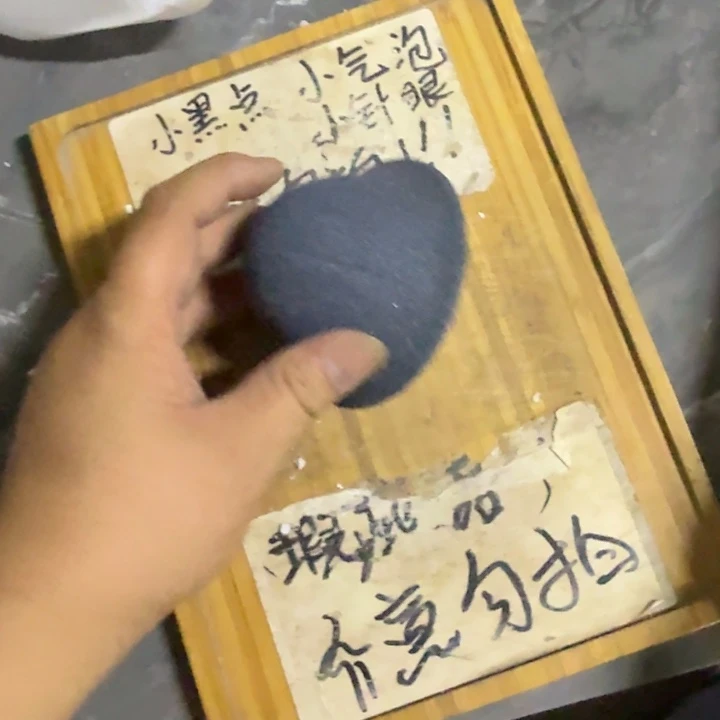 小黑点 小气泡
小针眼
瑕疵品
介意勿拍